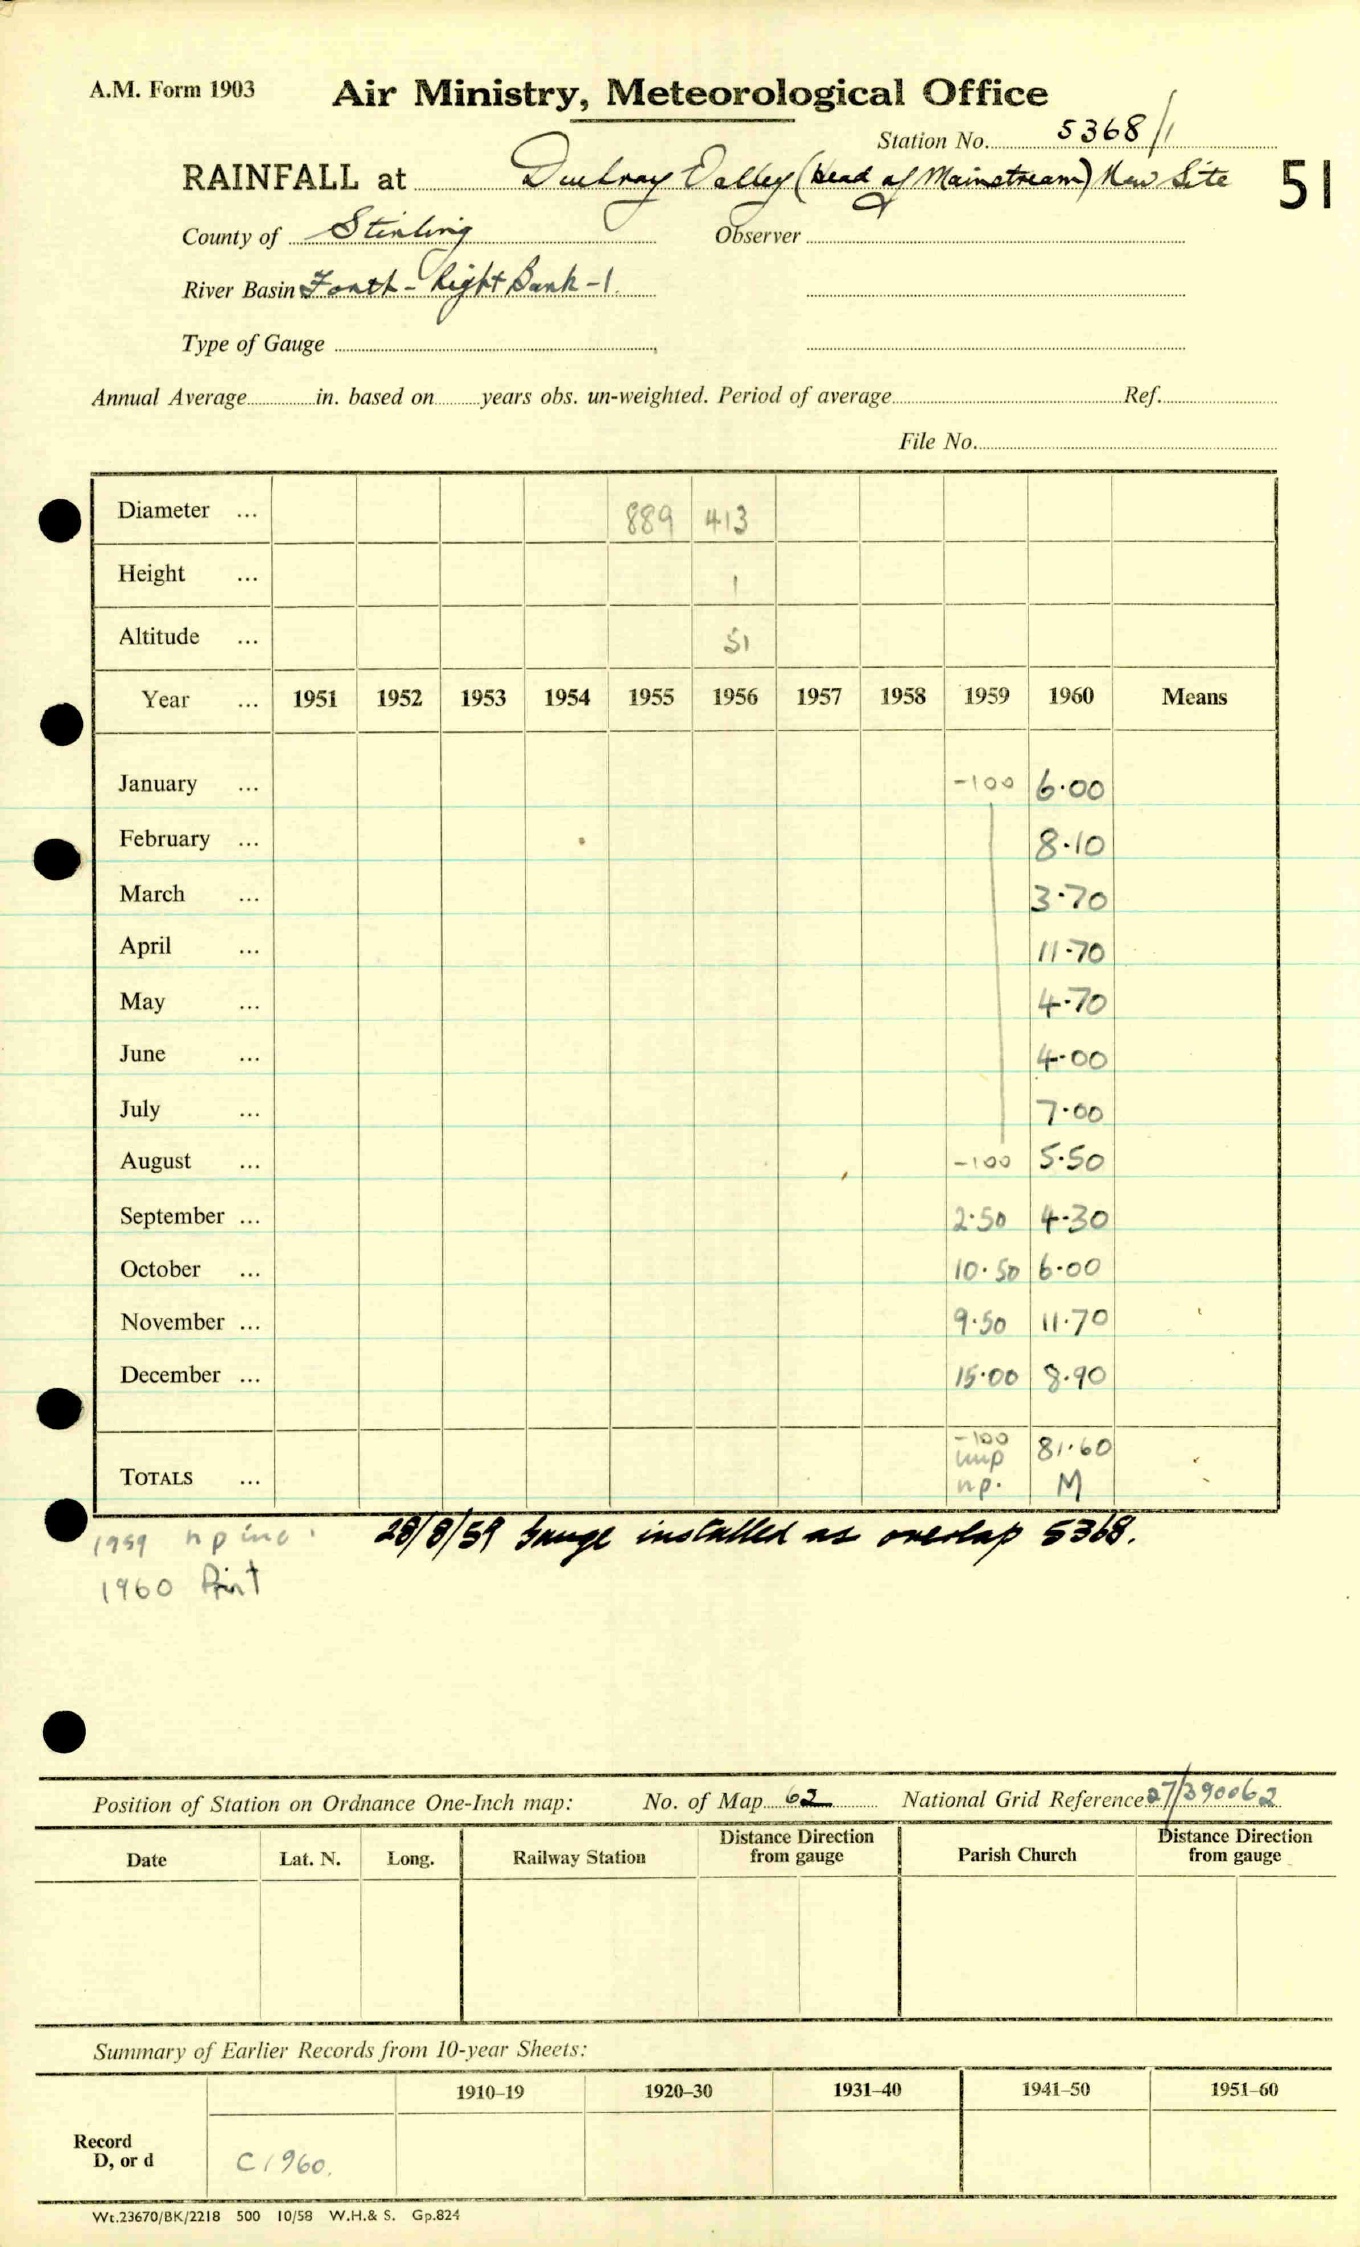 A.M. Form 1903 Air Ministry, Meteorological Office
Station No. 5368/1
RAINFALL at Duchray Valley (Head of Mainstream) New Site 51
County of Stirling Observer
River Basin Forth - Right Bank - 1.
Type of Gauge
Annual Average in. based on years obs. un-weighted. Period of average Ref.
File No.
Diameter ... 889 413
Height ... 1
Altitude ... 51
Year ... 1951 1952 1953 1954 1955 1956 1957 1958 1959 1960 Means
January ... -100 6.00
February ... 8.10
March ... 3.70
April ... 11.70
May ... 4.70
June ... 4.00
July ... 7.00
August ... -100 5.50
September ... 2.50 4.30
October ... 10.50 6.00
November ... 9.50 11.70
December ... 15.00 8.90
-100 81.60
TOTALS ... imp
np. M
1959 np inc. 28/8/59 Gauge installed as overlap 5368.
1960 Print
Position of Station on Ordnance One-Inch map: No. of Map 62 National Grid Reference 27/390062
Date Lat. N. Long. Railway Station Distance Direction from gauge Parish Church Distance Direction from gauge
Summary of Earlier Records from 10-year Sheets:
1910–19 1920–30 1931–40 1941–50 1951–60
Record
D, or d C1960.
Wt.23670/BK/2218 500 10/58 W.H.& S. Gp.824